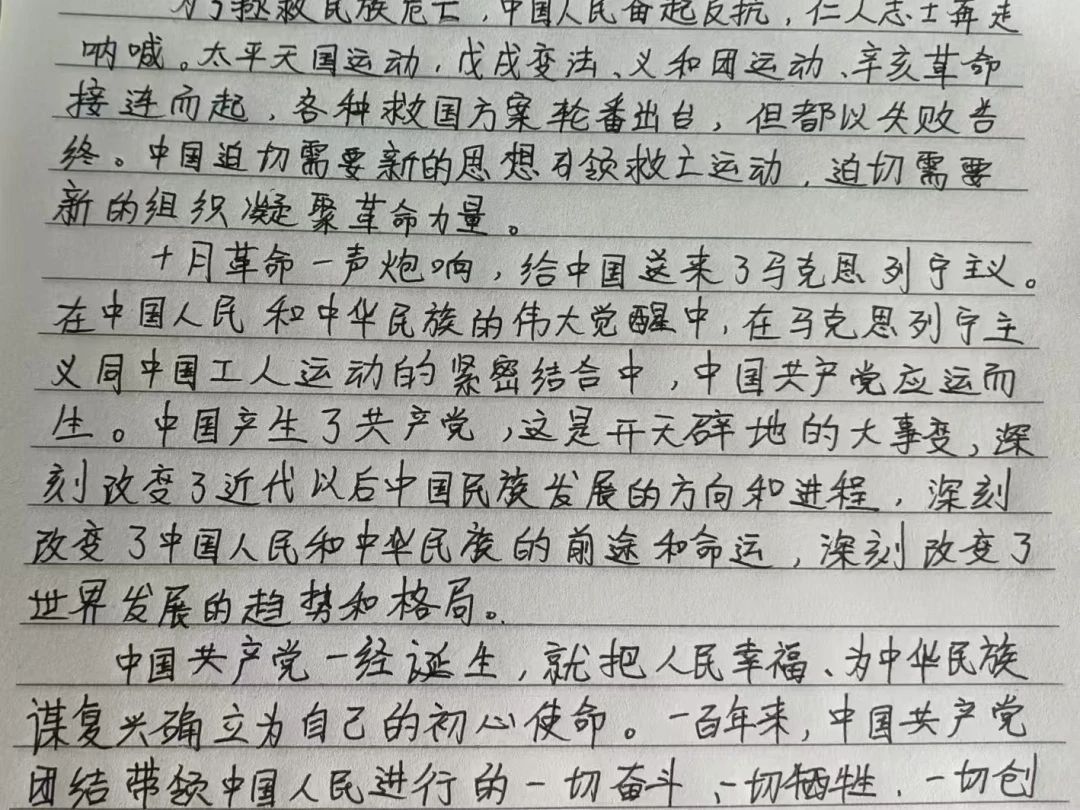 为了拯救民族危亡，中国人民奋起反抗，仁人志士再走
呐喊。太平天国运动，戊戌变法、义和团运动、辛亥革命
接连而起，各种救国方案轮番出台，但都以失败告
终。中国迫切需要新的思想引领救亡运动，迫切需要
新的组织凝聚革命力量。
十月革命一声炮响，给中国送来了马克思列宁主义。
在中国人民和中华民族的伟大觉醒中，在马克思列宁主
义同中国工人运动的紧密结合中，中国共产党应运而
生。中国产生了共产党，这是开天辟地的大事变，深
刻改变了近代以后中国民族发展的方向和进程，深刻
改变了中国人民和中华民族的前途和命运，深刻改变了
世界发展的趋势和格局。
中国共产党一经诞生，就把人民幸福、为中华民族
谋复兴确立为自己的初心使命。一百年来，中国共产党
团结带领中国人民进行的一切奋斗、一切牺牲、一切创